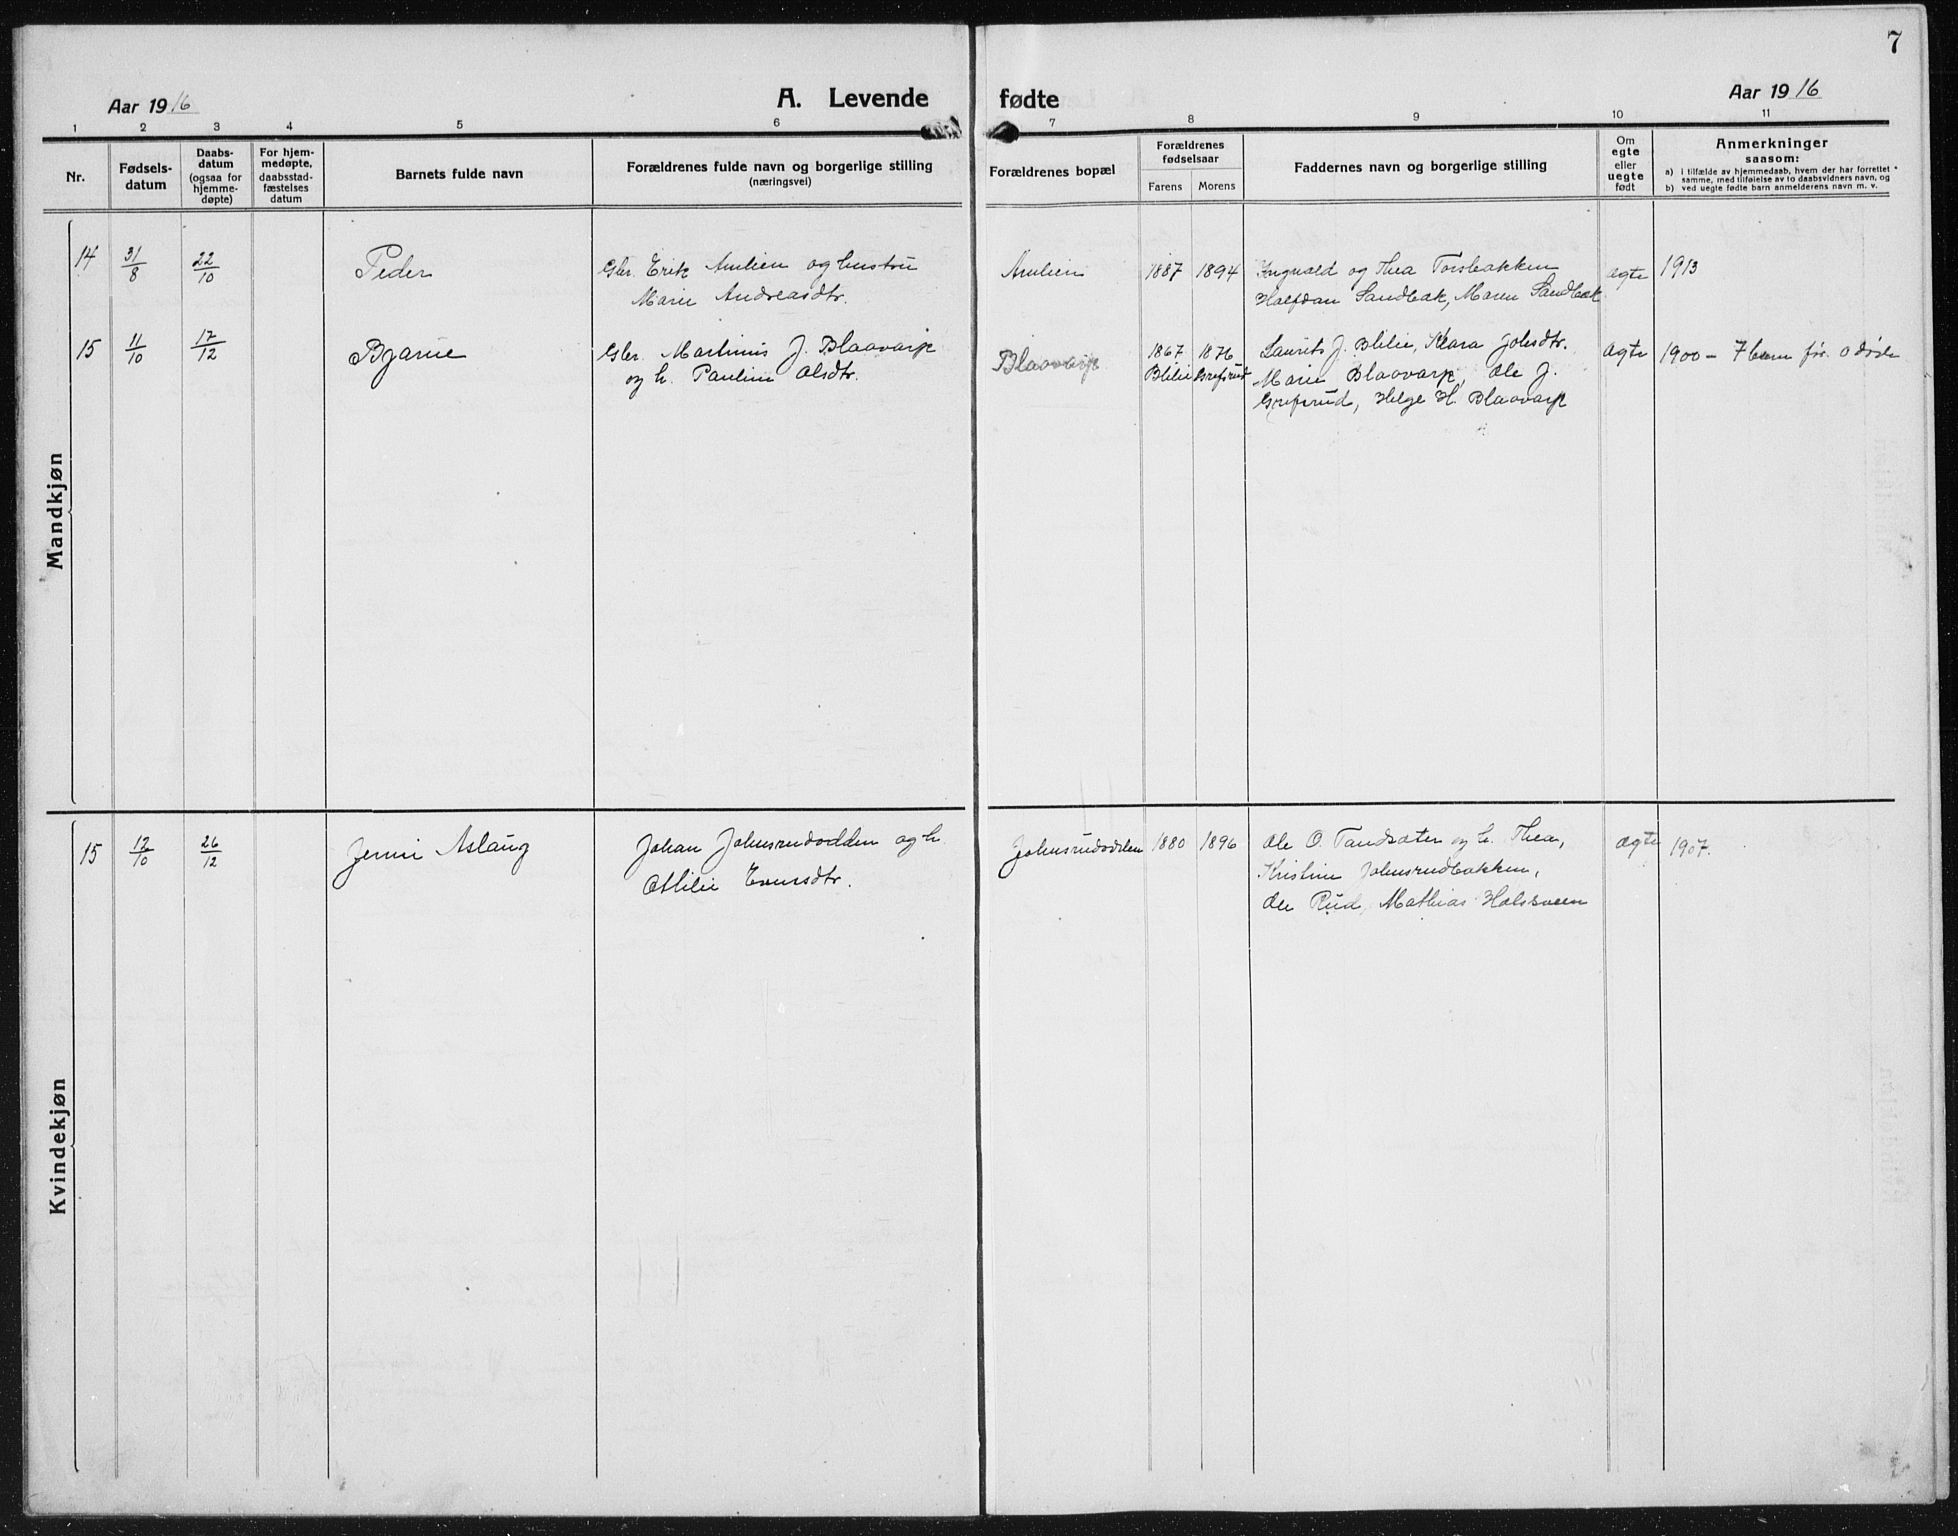 7
Aar 1916
A. Levende fødte
Aar 1916
1 2 3 4 5 6 7 8 9 10 11
Nr.
Fødsels-
datum
Daabs-
datum
(ogsaa for
hjemme-
døpte)
For hjem-
medøpte,
daabsstad-
fæstelses
datum
Barnets fulde navn
Forældrenes fulde navn og borgerlige stilling
(næringsvei)
Forældrenes bopæl
Forældrenes
fødselsaar
Farens Morens
Faddernes navn og borgerlige stilling
Om
egte
eller
uegte
født
Anmerkninger
saasom:
a) i tilfælde av hjemmedaab, hvem der har forrettet
samme, med tilføielse av to daabsvidners navn, og
b) ved uegte fødte barn anmelderens navn m. v.
Mandkjøn
14 31/8 22/10 Peder
Gbr. Erik Amlien og hustru
Marie Andreasdtr.
Amlien 1887 1894
Ingvald og Thea Torsbakken
Halfdan Sandbak, Maren Sandbak
ægte 1913
15 11/10 17/12 Bjarne
Gbr. Martinus J. Blaavarp
og h. Pauline Olsdtr.
Blaavarp
1867 1876
Blilie Grefsrud
Laurits J. Blilie, Klara Johsdtr.
Marie Blaavarp, Ole J.
Grefsrud, Helge H. Blaavarp
ægte 1900 - 7 barn før. 0 døde
Kvindekjøn
15 12/10 26/12 Jenni Aslaug
Johan Johnsrudodden og h.
Otilie Evensdtr.
Johnsrudodden 1880 1896
Ole O. Tandsæter og h. Thea,
Kristine Johnsrudbakken,
Ole Rud, Mathias Halsveen
ægte 1907.